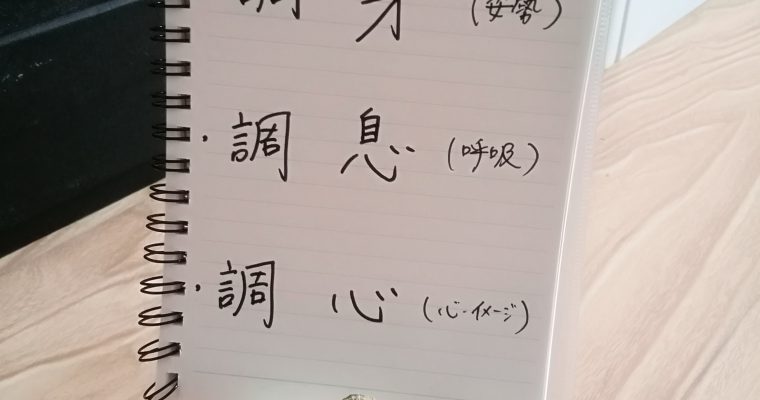 調 身 (姿勢)
・調 息 (呼吸)
・調 心 (心・イメージ)